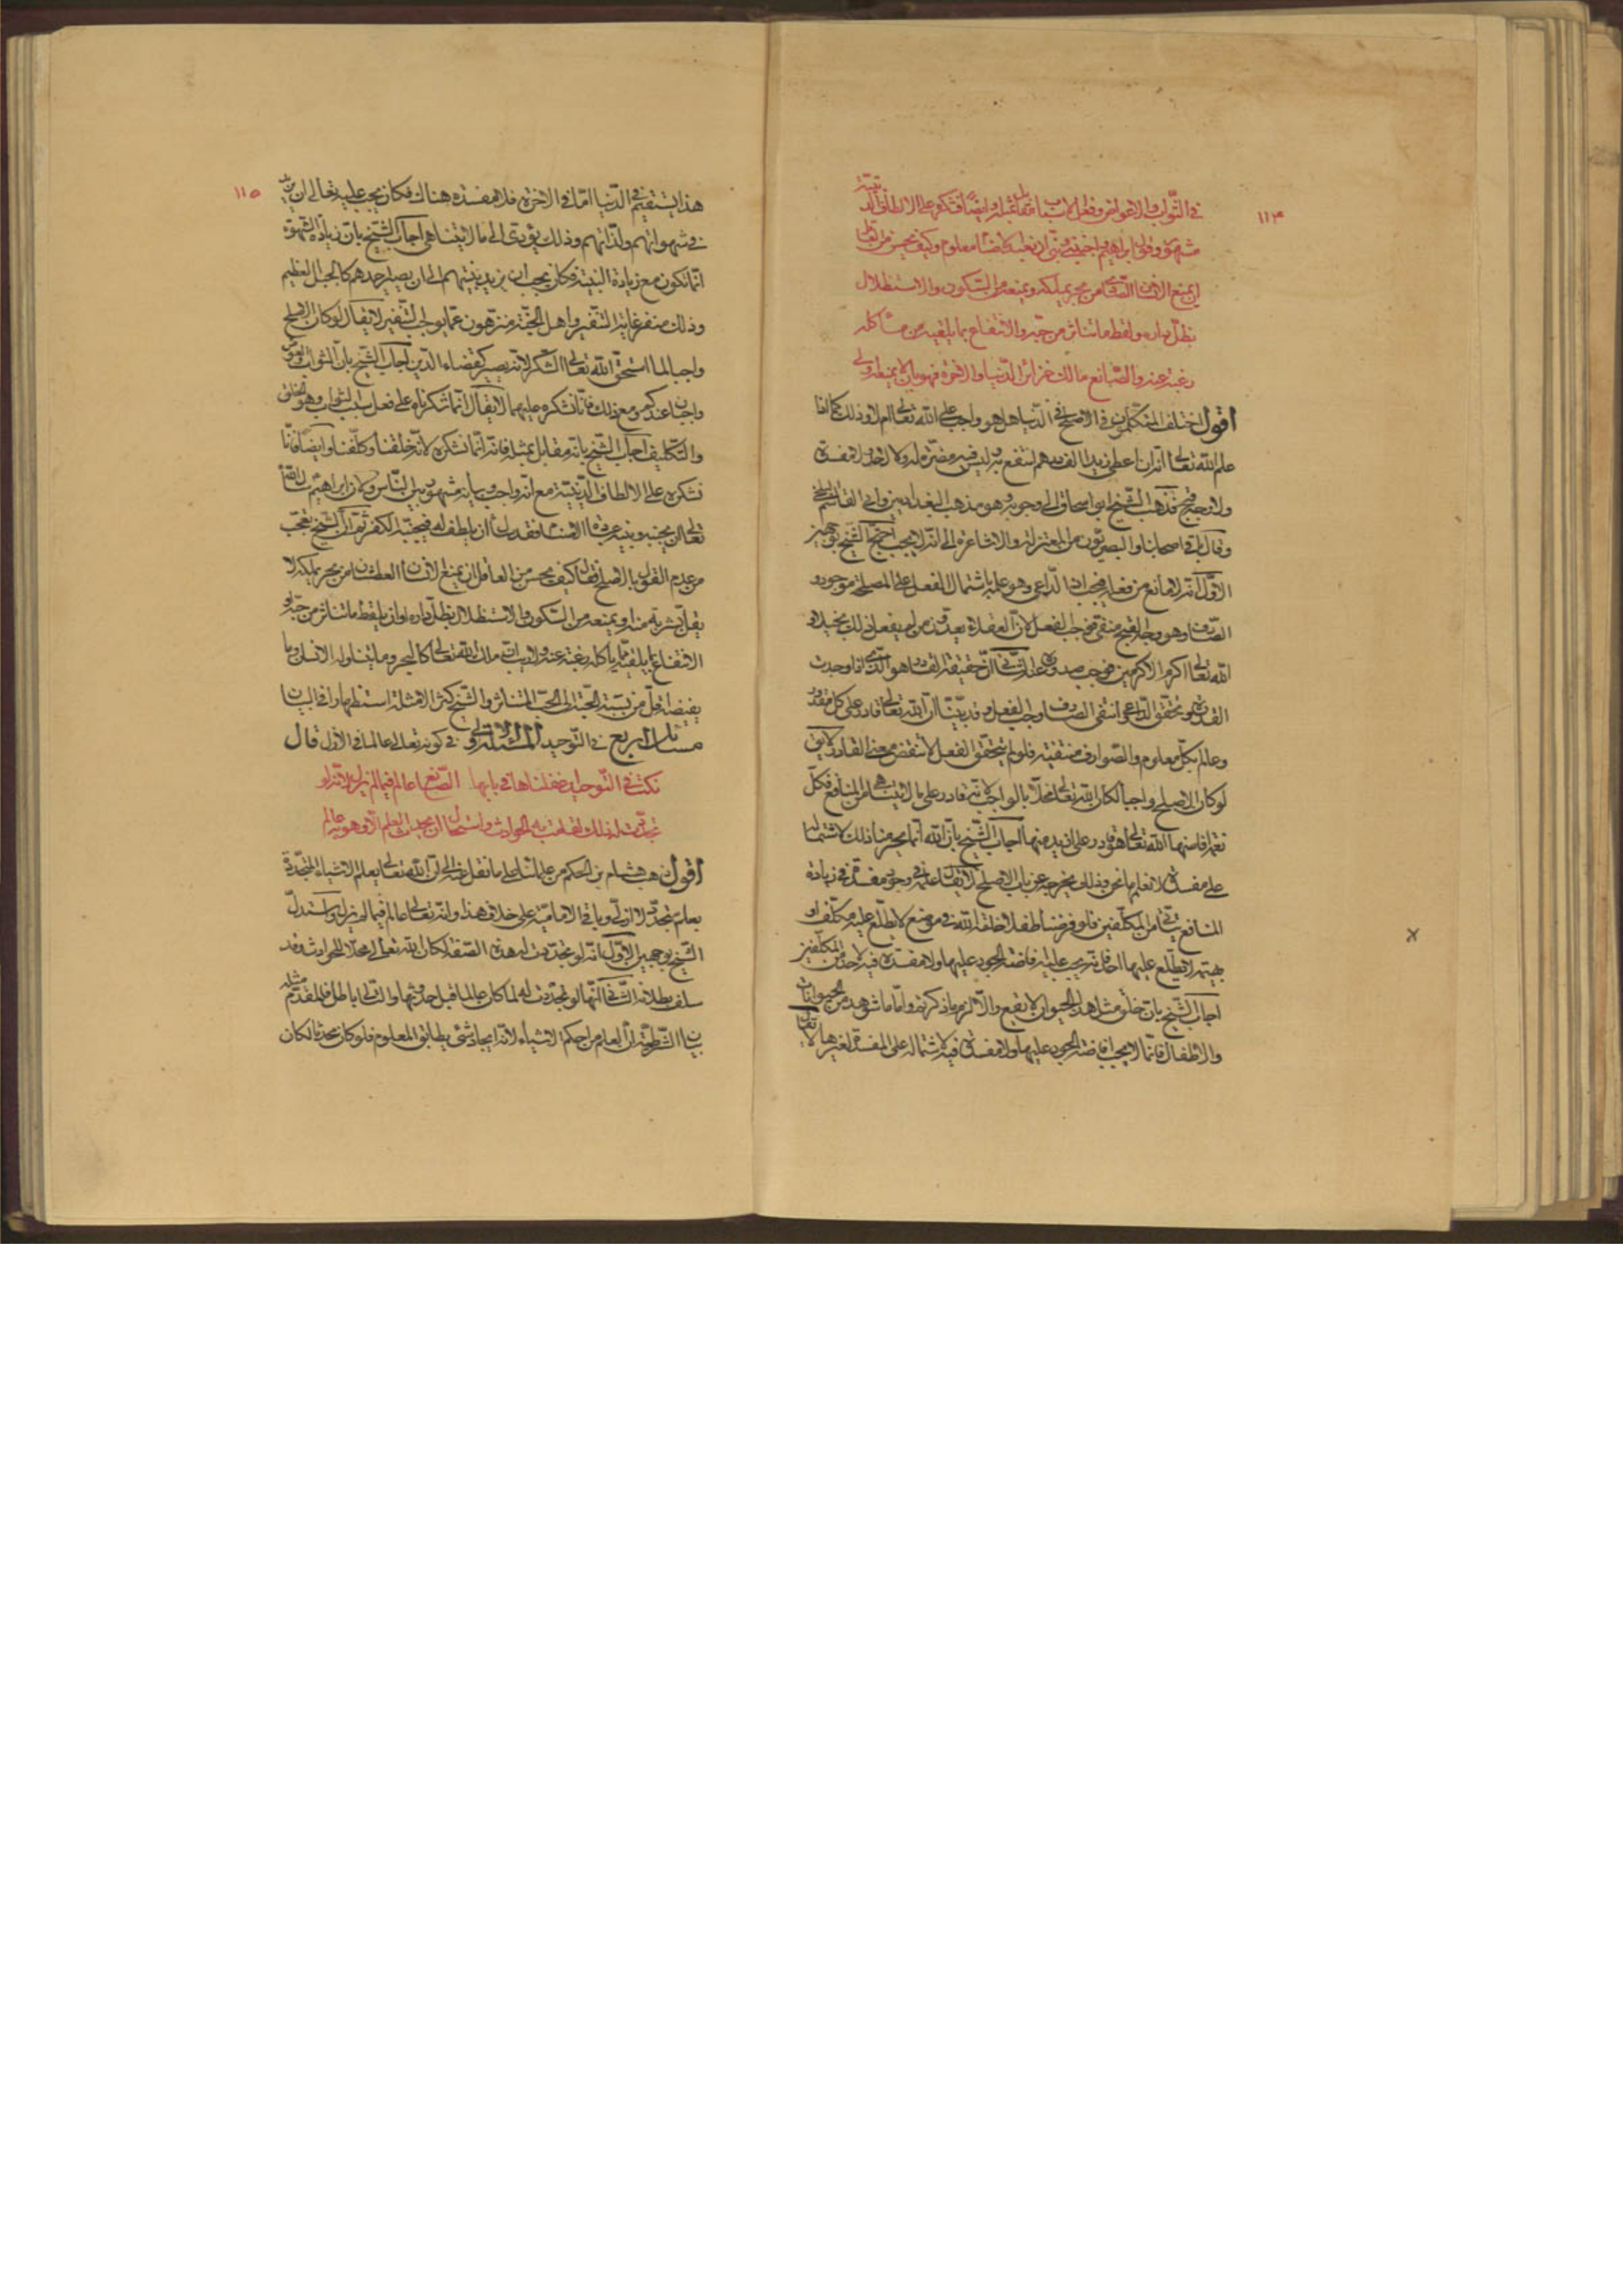 ١١٤
في الثواب والاعواض وفعل الاسباب مقابلة وايضا فنشكره على الالطاف الدينية
مشهورة وقول ابراهيم واجنبني وبني ان نعبد الاصنام معلوم وكيف يحسن من تعالى
ان يمنع الانسان الصادي من بحر يملكه ويمنعه من السكون والاستظلال
بظل داره ولقط ما تناثر من حبه والانتفاع بما يلقيه من مأكله
رغبة عنه والصانع مالك خزائن الدنيا والاخرة فهو بان لا يمنع اولى
اقول اختلف المتكلمون في الاصلح في الدنيا هل هو واجب على الله تعالى ام لا وذلك كما اذا
علم الله تعالى انه ان اعطى زيدا الف درهم انتفع به وليس فيه مضرة له ولا لاحد ولا مفسدة
ولا وجه قبح فذهب الشيخ ابو اسحاق الى وجوبه وهو مذهب البغداديين وابي القاسم البلخي
وقال باقي اصحابنا والبصريون من المعتزلة والاشاعرة الى انه لا يجب احتج الشيخ بوجهين
الاول انه لا مانع من فعله فيجب اذ الداعي وهو علمه باشتمال الفعل على المصلحة موجود و
الصارف وهو وجه القبح منتف فيجب الفعل لان العقلاء يعدون من لم يفعل ذلك بخيلا و
الله تعالى اكرم الاكرمين فوجب صدوره عنه الثاني ان حقيقة القادر هو الذي اذا وجدت
القدرة وتحقق الداعي وانتفى الصارف وجب الفعل وقد بينا ان الله تعالى قادر على كل مقدور
وعالم بكل معلوم والصوارف منتفية فلو لم يتحقق الفعل لانتقض معنى القادر لا يقال
لو كان الاصلح واجبا لكان الله تعالى مخلا بالواجب لانه قادر على ما لا يتناهى من المنافع فكل
نعمة فاضها الله تعالى هو قادر على ازيد منها اجاب الشيخ بان الله انما يحرمنا ذلك لاشتماله
على مفسدة لا نعلمها نحن وذلك يخرجه عن باب الاصلح لا يقال علمه في وجود مفسدة في زيادة
المنافع يتأتى من المكلفين فلو فرضنا طفلا خلقه الله في موضع لا يطلع عليه مكلف او
بهيمة لا يطلع عليها احد فانه يجب عليه افاضة الجود عليها ولا مفسدة فيه لاحد من المكلفين
اجاب الشيخ بان خلق مثل هذا الحيوان لا يقع والا لزم ما ذكرتموه واما ما شوهد من الحيوانات
والاطفال فانما لا يجب افاضة الجود عليها ولا مفسدة فيه لاشتماله على المفسدة لغيرها لا يقال
١١٥
هذا يستقيم في الدنيا اما في الاخرة فلا مفسدة هناك فكان يجب عليه تعالى ان يزيد
في شهواتهم ولذاتهم وذلك يؤدي الى ما لا يتناهى اجاب الشيخ بان زيادة الشهوة
انما تكون مع زيادة البنية فكان يجب ان يزيد بنيتهم الى ان يصير احدهم كالجبل العظيم
وذلك منفر غاية التنفير واهل الجنة منزهون عما يوجب التنفير لا يقال لو كان الاصلح
واجبا لما استحق الله تعالى الشكر لانه يصير كقضاء الدين اجاب الشيخ بان الثواب والعوض
واجبان عندكم ومع ذلك فانا نشكره عليهما لا يقال انما شكرناه على فعل سبب الثواب وهو الخلق
والتكليف اجاب الشيخ بانه مقابل بمثله فانه انما نشكره لانه خلقنا وكلفنا وايضا فانا
نشكره على الالطاف الدينية مع انه واجب وبيانه مشهور بين الناس وكان ابراهيم سال الله
تعالى ان يجنبه وبنيه عبادة الاصنام فقد سأل ان يلطف له فيجنبه الكفر ثم ان الشيخ تعجب
من عدم القول بالاصلح فقال كيف يحسن من العاقل ان يمنع الانسان العطشان من بحر يملكه لا
يقل بشربه منه او يمنعه من السكون والاستظلال بظل داره او ان يلقط ما تناثر من حبه او
الانتفاع بما يلقيه مما يأكله رغبة عنه ولا ريب انه مالك الله تعالى كالبحر وما يتناوله الانسان وما
يفيضه اقل من نسبة الحبة الى الحب المتناثر والشيخ كثر الامثلة استظهارا في البيان
مسائل اربع في التوحيد المسئلة الاولى في كونه تعالى عالما في الازل قال
نكت في التوحيد اضفناها في بابها الصانع عالم فيما لم يزل لانه لو
تجددت له ذلك لقامت به الحوادث واستحال ان يحدث العلم الا وهو به عالم
اقول ذهب هشام بن الحكم من علمائنا على ما نقل عنه الى ان الله تعالى يعلم الاشياء المتجددة
بعلم متجدد لا ازلي وباقي الامامية على خلاف هذا وانه تعالى عالم فيما لم يزل واستدل
الشيخ بوجهين الاول انه لو تجددت له هذه الصفة لكان الله تعالى محلا للحوادث وقد
سلف بطلانه الثاني انها لو تجددت له لما كان عالما قبل حدوثها والتالي باطل فالمقدم مثله
بيان الشرطية ان العلم من احكم الاشياء لانه ايجاد شئ يطابق المعلوم فلو كان محدثا لكان